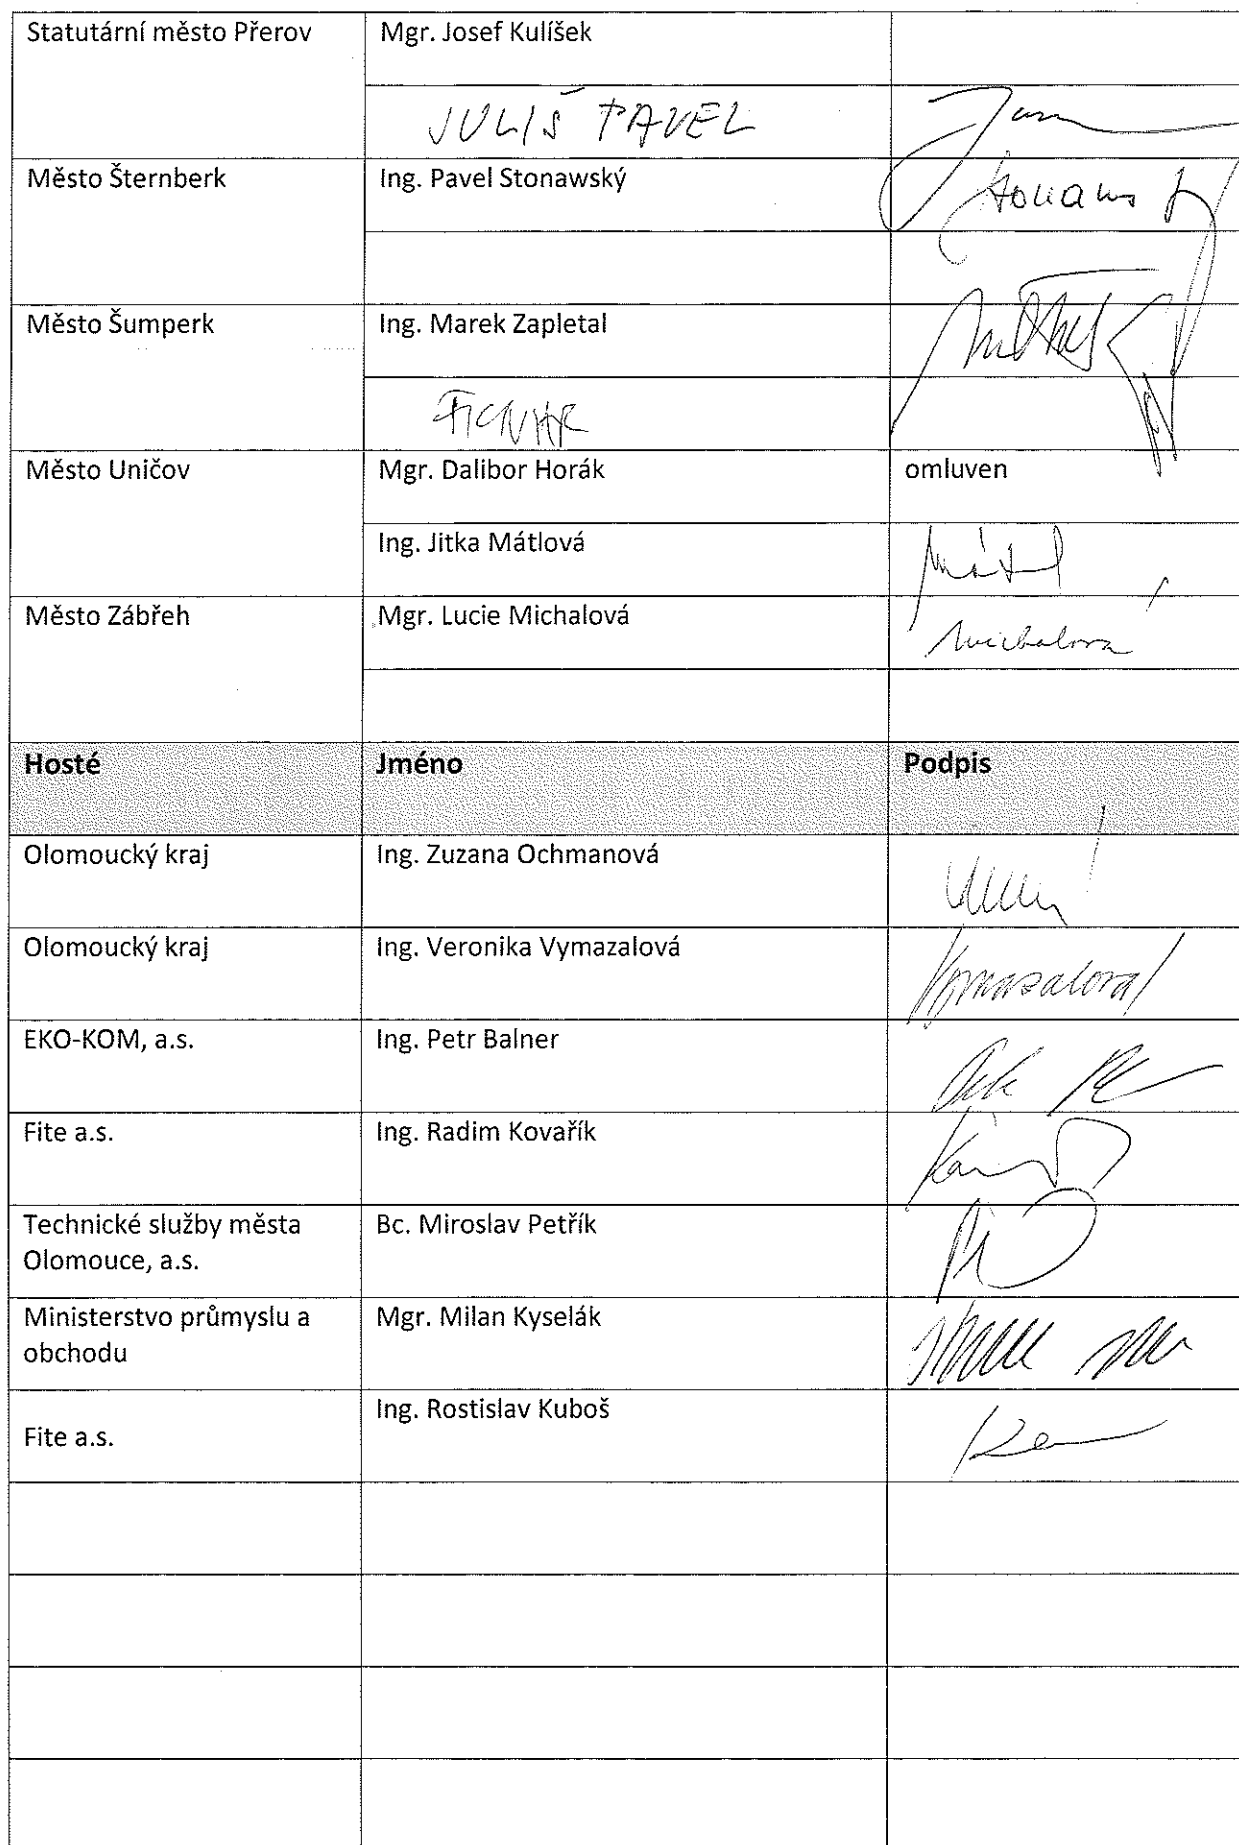 Statutární město Přerov Mgr. Josef Kulíšek
JULIŠ PAVEL
Město Šternberk Ing. Pavel Stonawský
Město Šumperk Ing. Marek Zapletal
Město Uničov Mgr. Dalibor Horák omluven
Ing. Jitka Mátlová
Město Zábřeh Mgr. Lucie Michalová
Michalová
Hosté Jméno Podpis
Olomoucký kraj Ing. Zuzana Ochmanová
Olomoucký kraj Ing. Veronika Vymazalová Vymazalová
EKO-KOM, a.s. Ing. Petr Balner
Fite a.s. Ing. Radim Kovařík
Technické služby města Bc. Miroslav Petřík
Olomouce, a.s.
Ministerstvo průmyslu a Mgr. Milan Kyselák
obchodu
Ing. Rostislav Kuboš
Fite a.s.